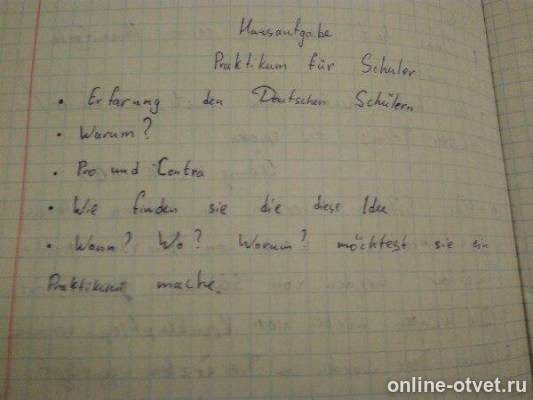 Hausaufgabe
Praktikum für Schuler
• Erfarung den Deutschen Schülern
• Warum?
• Pro und Contra
• Wie finden sie die diese Idee
• Wann? Wo? Warum? möchtest sie ein
Praktikum mache.
online-otvet.ru